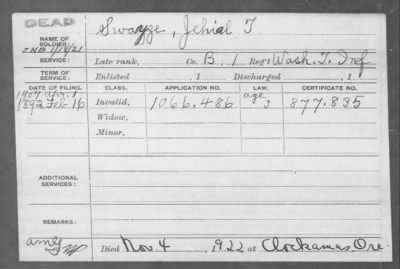 DEAD
NAME OF SOLDIER: Swayze, Jehial T
IND 1/18/21
SERVICE: Late rank, Co. B, 1 Reg't Wash. T. Inf
TERM OF SERVICE: Enlisted , 1 Discharged , 1
DATE OF FILING. CLASS. APPLICATION NO. LAW. CERTIFICATE NO.
1907 Apr. 1 age
1892 Feb 16 Invalid, 1066.486 J 877.835
Widow,
Minor,
ADDITIONAL SERVICES:
REMARKS:
Died Nov. 4 , 1922 at Clackamas, Ore.